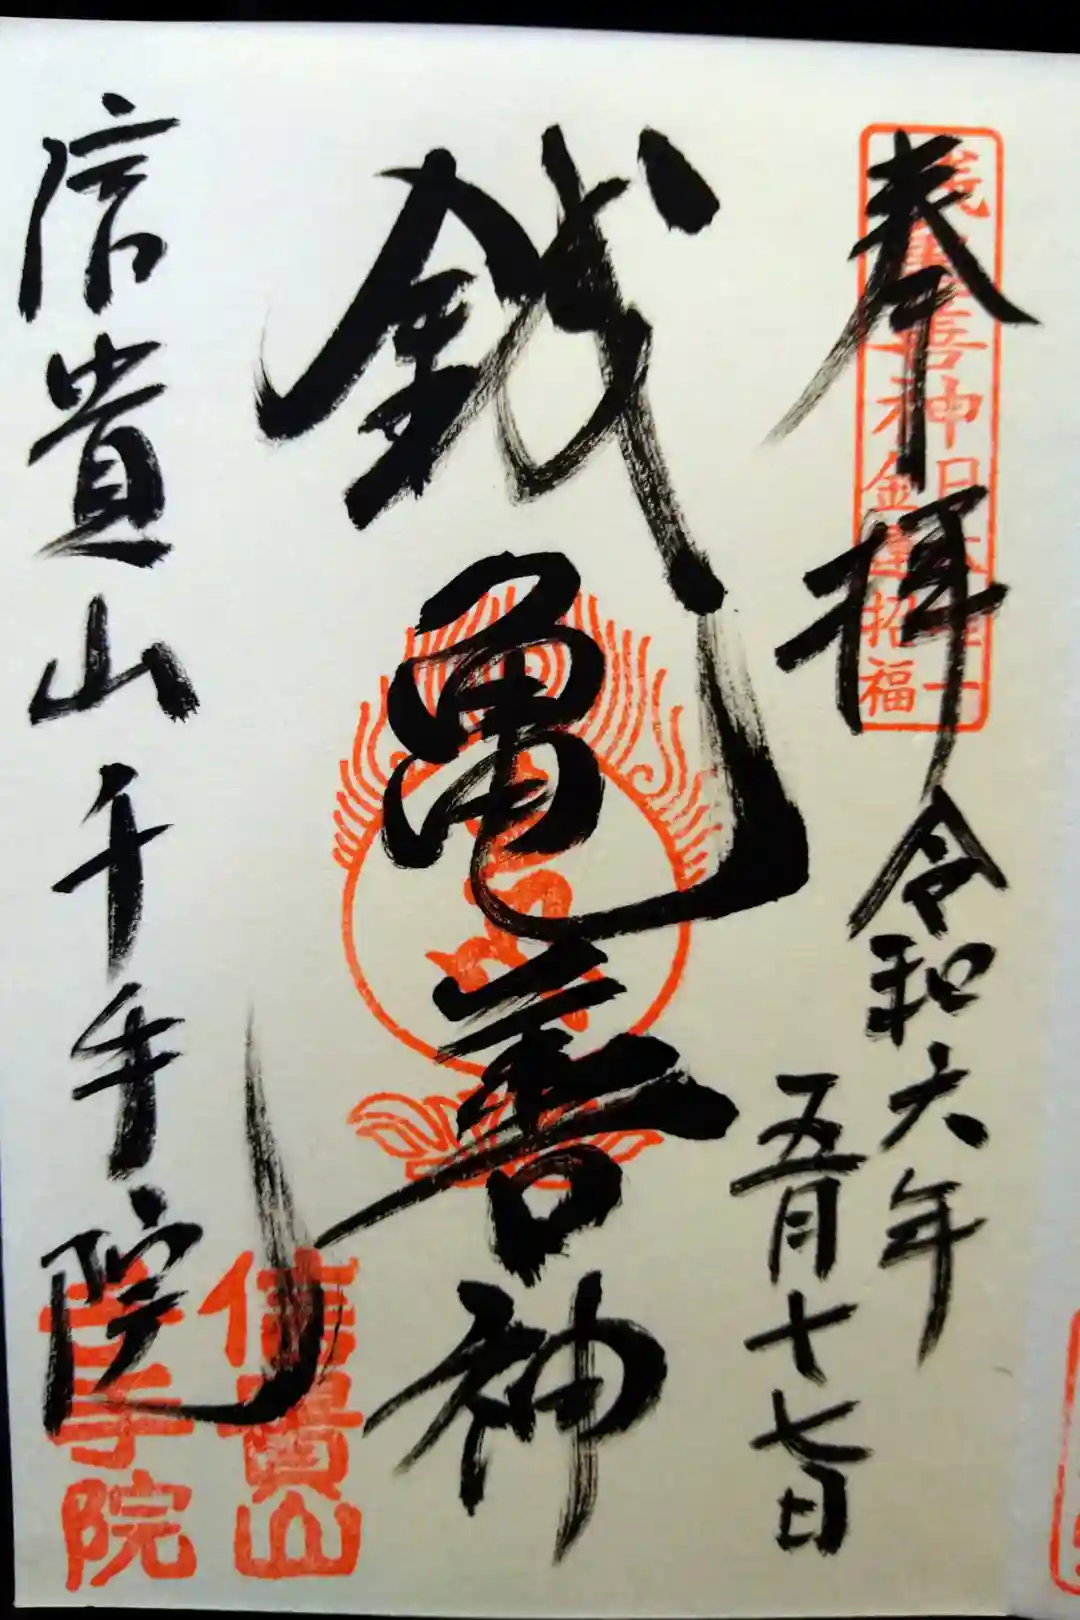 奉拝
令和六年
五月十七日
銭亀善神
信貴山千手院
善神日本唯一
金運招福
信貴山
千手院